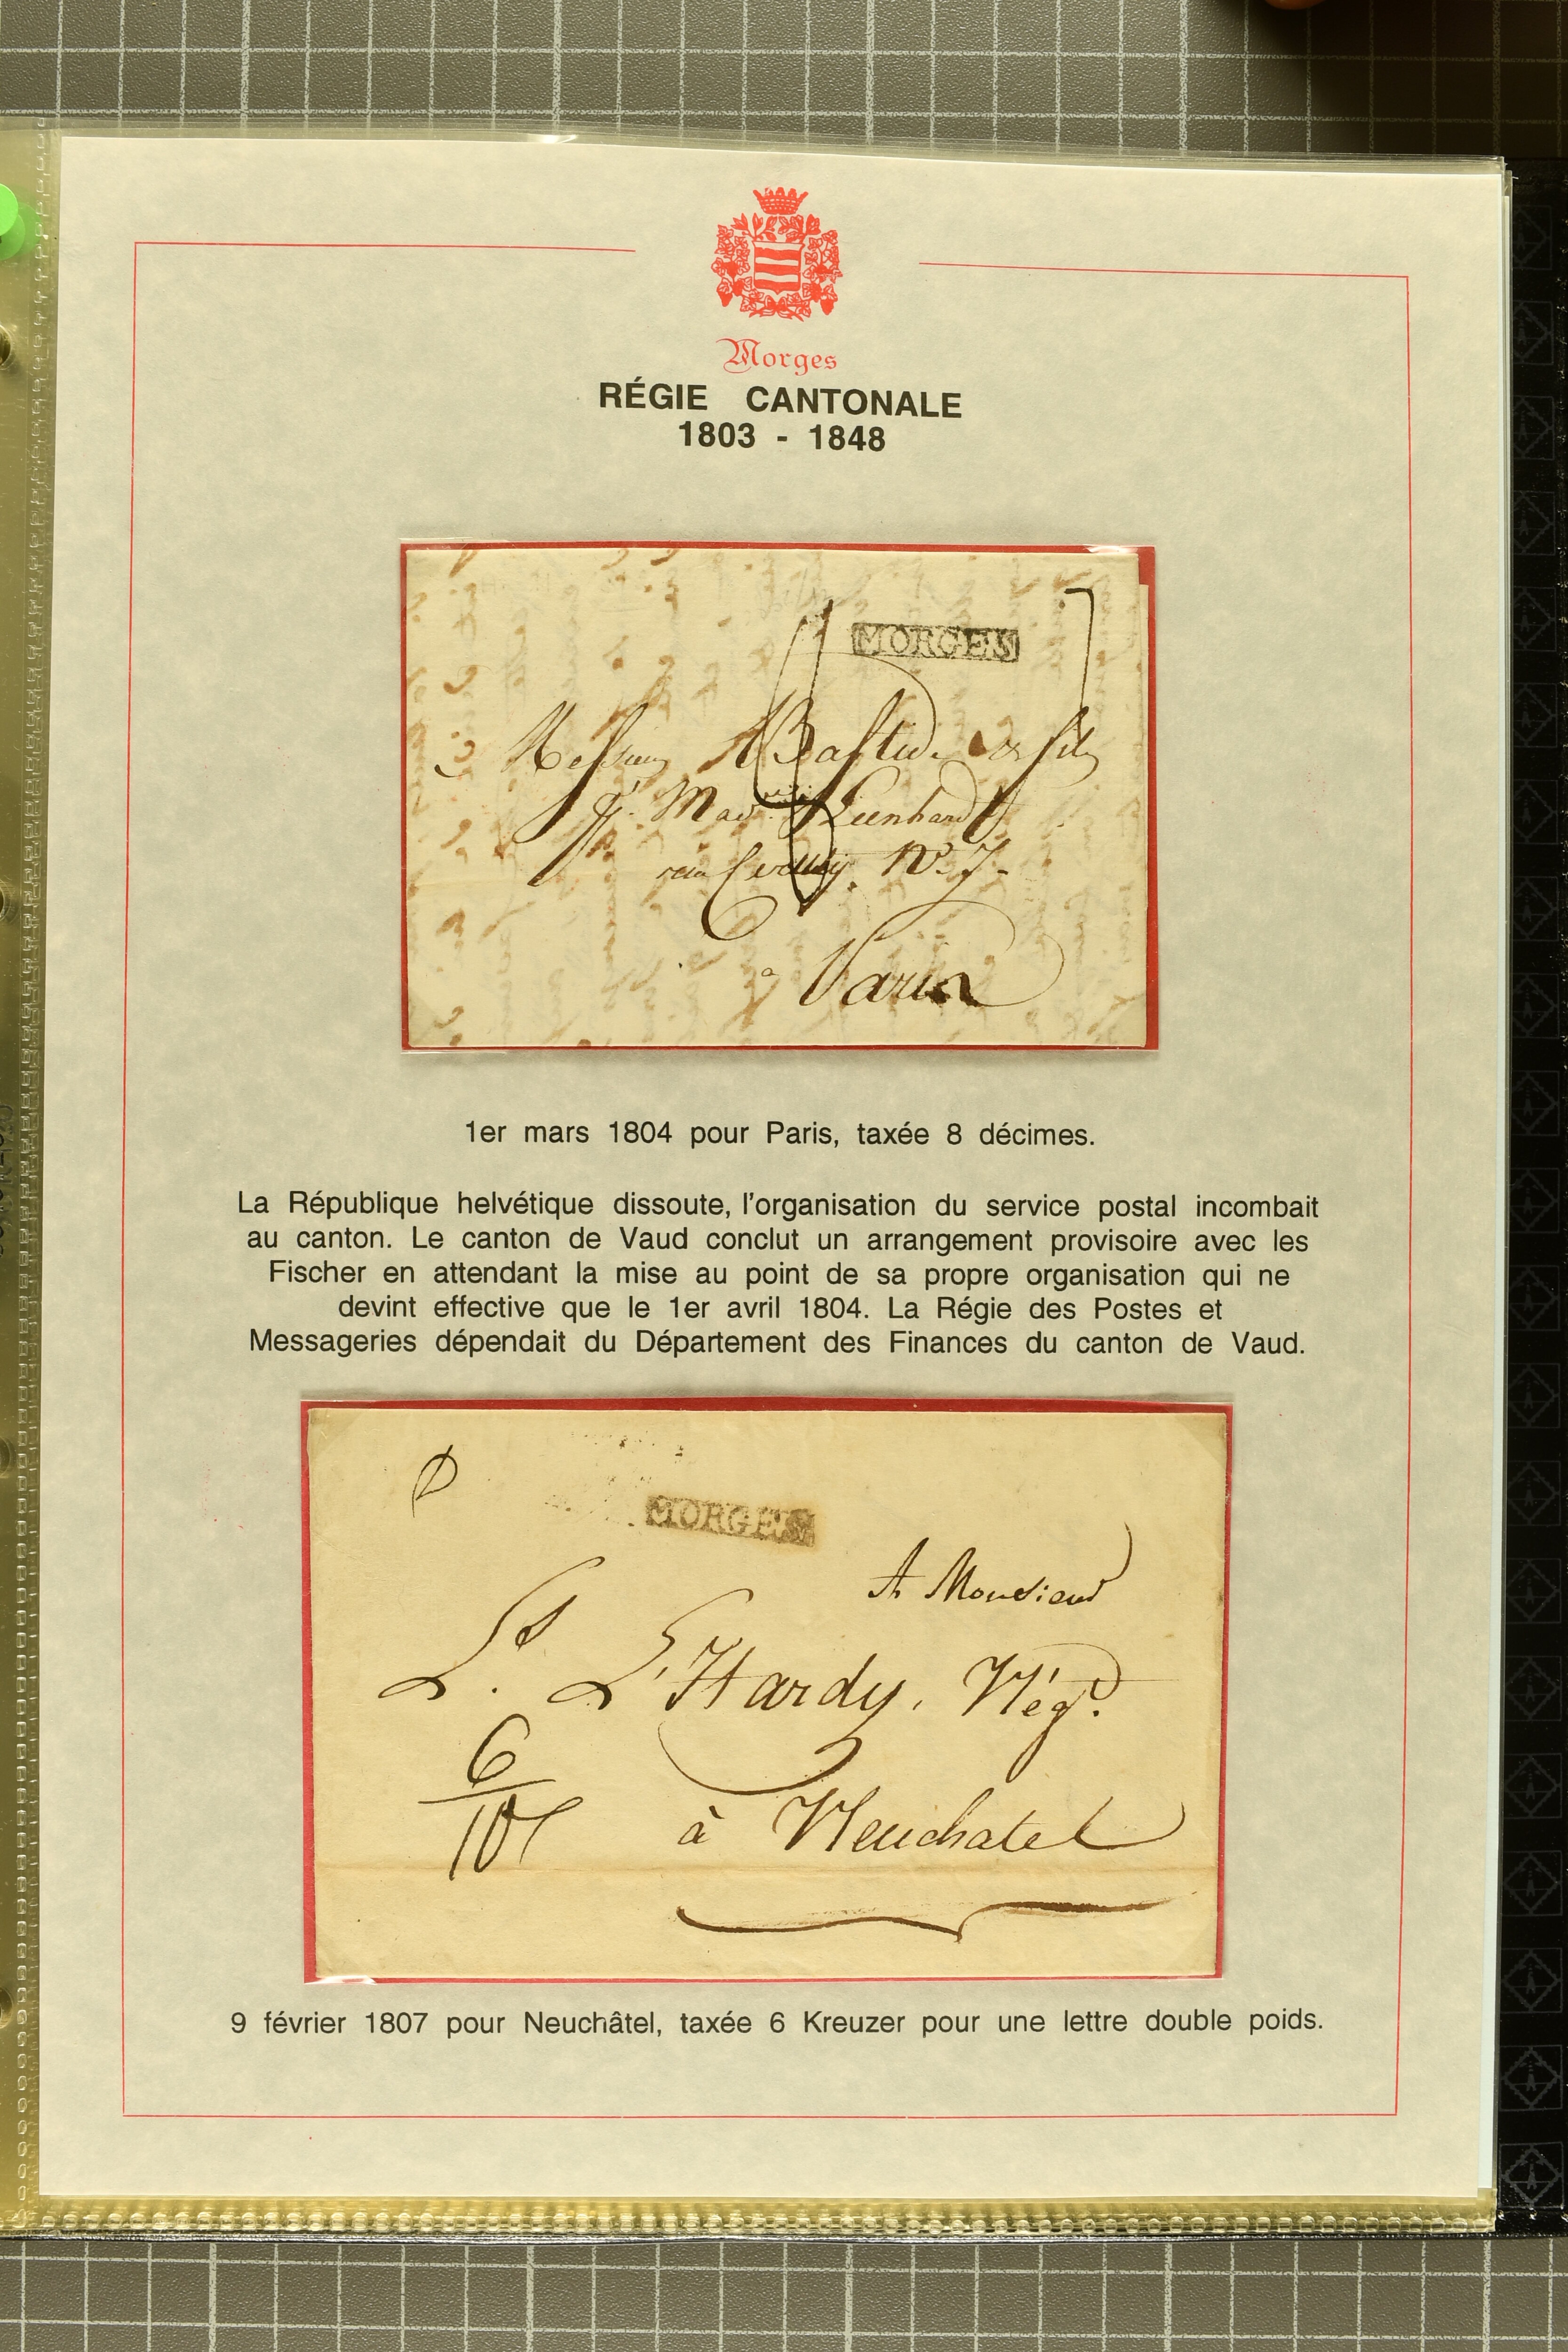 Morges
RÉGIE CANTONALE
1803 - 1848
MORGES
Messieurs Bastide & fils
Mad. Leenhardt
rue No 7.
a Paris
1er mars 1804 pour Paris, taxée 8 décimes.
La République helvétique dissoute, l'organisation du service postal incombait
au canton. Le canton de Vaud conclut un arrangement provisoire avec les
Fischer en attendant la mise au point de sa propre organisation qui ne
devint effective que le 1er avril 1804. La Régie des Postes et
Messageries dépendait du Département des Finances du canton de Vaud.
MORGES
A Monsieur
Ls. L'Hardy, Négt.
6
10
à Neuchatel
9 février 1807 pour Neuchâtel, taxée 6 Kreuzer pour une lettre double poids.